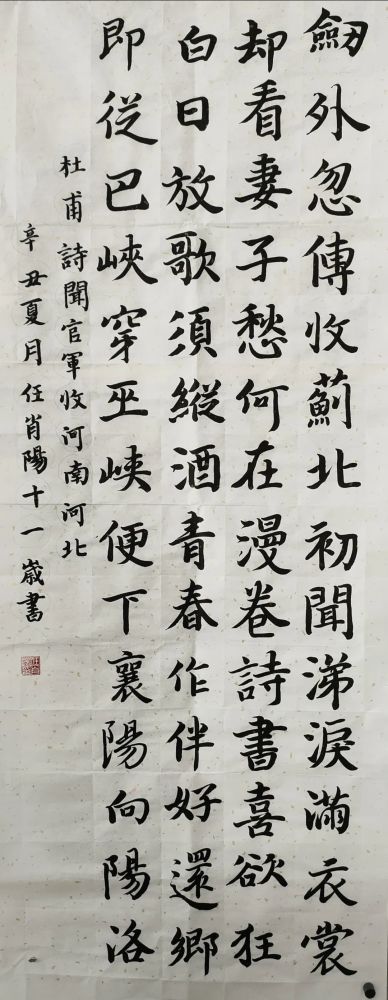 劒外忽傳收薊北初聞涕淚滿衣裳
却看妻子愁何在漫卷詩書喜欲狂
白日放歌須縱酒青春作伴好還鄉
即從巴峽穿巫峽便下襄陽向陽洛
杜甫詩聞官軍收河南河北
辛丑夏月任肖陽十一歲書